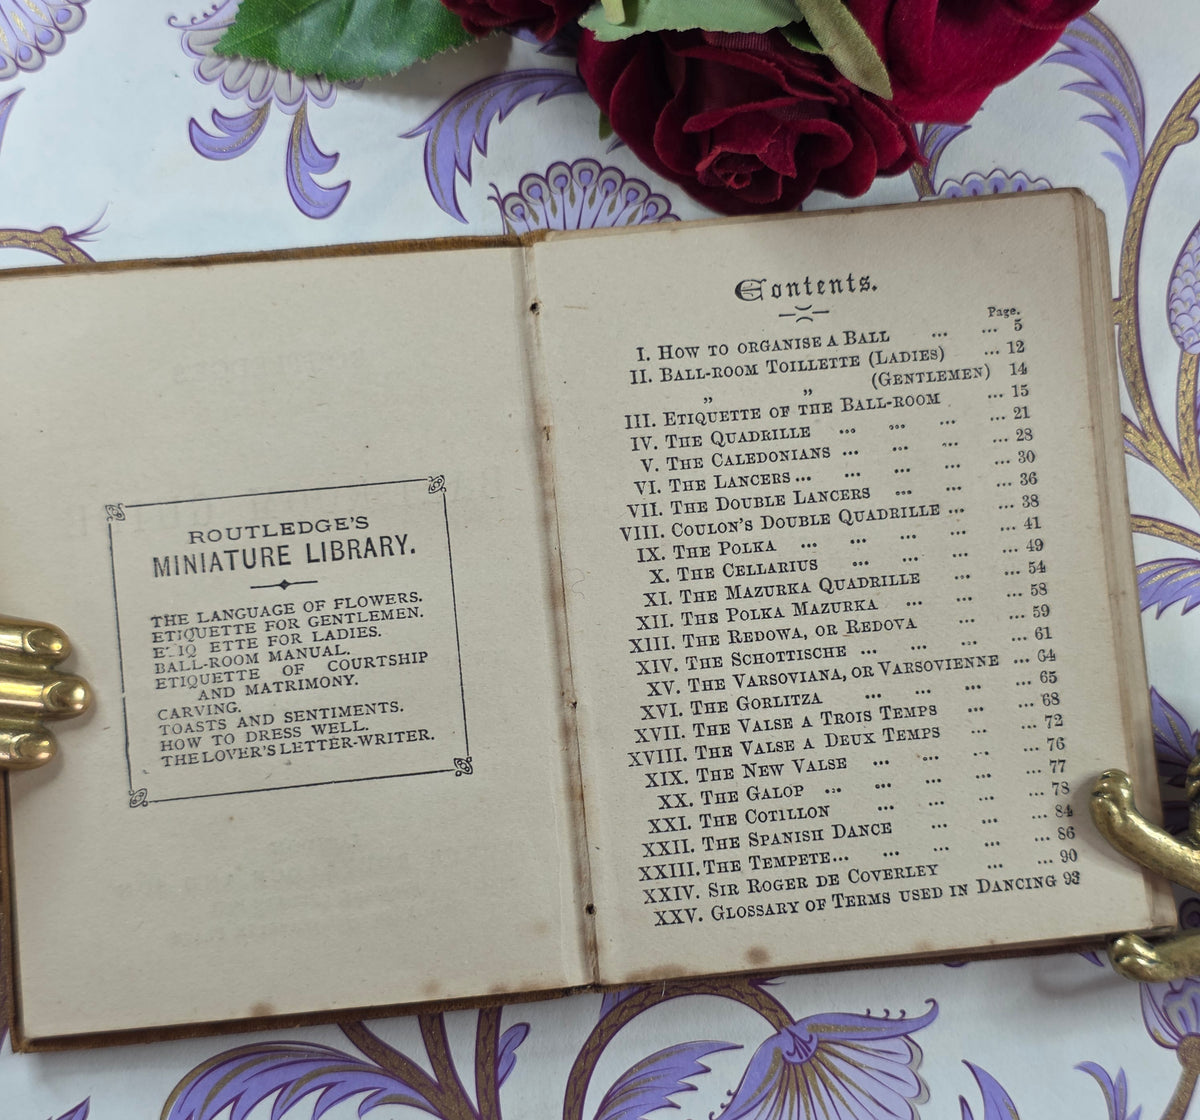 ROUTLEDGE'S
MINIATURE LIBRARY.
THE LANGUAGE OF FLOWERS.
ETIQUETTE FOR GENTLEMEN.
ETIQ ETTE FOR LADIES.
BALL-ROOM MANUAL.
ETIQUETTE OF COURTSHIP
AND MATRIMONY.
CARVING.
TOASTS AND SENTIMENTS.
HOW TO DRESS WELL.
THE LOVER'S LETTER-WRITER.
Contents.
Page.
I. HOW TO ORGANISE A BALL ... ... 5
II. BALL-ROOM TOILLETTE (LADIES) ... 12
" " (GENTLEMEN) 14
III. ETIQUETTE OF THE BALL-ROOM ... 15
IV. THE QUADRILLE ... ... ... ... 21
V. THE CALEDONIANS ... ... ... ... 28
VI. THE LANCERS ... ... ... ... ... 30
VII. THE DOUBLE LANCERS ... ... ... 36
VIII. COULON'S DOUBLE QUADRILLE ... ... 38
IX. THE POLKA ... ... ... ... ... 41
X. THE CELLARIUS ... ... ... ... 49
XI. THE MAZURKA QUADRILLE ... ... 54
XII. THE POLKA MAZURKA ... ... ... 58
XIII. THE REDOWA, OR REDOVA ... ... 59
XIV. THE SCHOTTISCHE ... ... ... ... 61
XV. THE VARSOVIANA, OR VARSOVIENNE ... 64
XVI. THE GORLITZA ... ... ... ... 65
XVII. THE VALSE A TROIS TEMPS ... ... 68
XVIII. THE VALSE A DEUX TEMPS ... ... 72
XIX. THE NEW VALSE ... ... ... ... 76
XX. THE GALOP ... ... ... ... ... 77
XXI. THE COTILLON ... ... ... ... 78
XXII. THE SPANISH DANCE ... ... ... 84
XXIII. THE TEMPETE... ... ... ... ... 86
XXIV. SIR ROGER DE COVERLEY ... ... 90
XXV. GLOSSARY OF TERMS USED IN DANCING 93